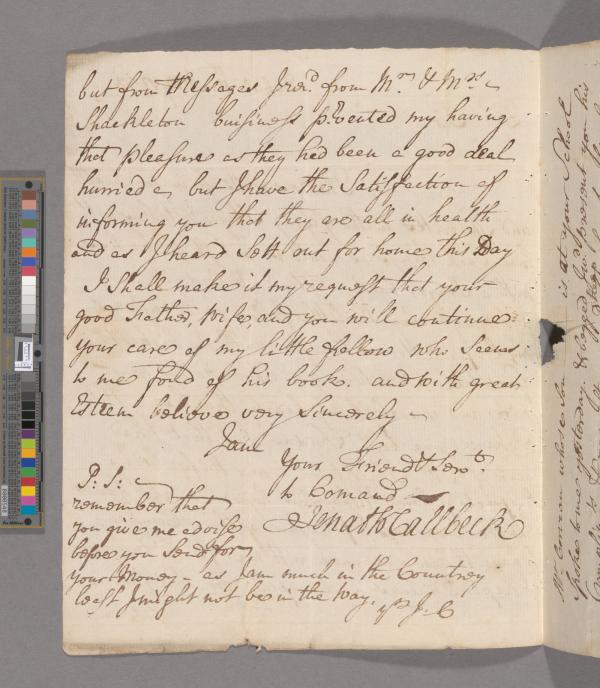 but from Messages I rec'd from Mr. & Mrs.
Shackleton buisiness p'vented my having
that pleasure as they had been a good deal
hurried, but I have the Satisfaction of
informing you that they are all in health
and as I heard Sett out for home this Day
I Shall make it my request that your
good Father, Wife, and you will continue
your care of my little fellow who Seems
to me fond of his book. and with great
Esteem believe very Sincerely
I am
Your Friend & Servt.
to Comand
Jonath Callbeck
P: S:
remember that
you give me advise
before you Send for
your Money - as I am much in the Countrey
least I might not be in the Way. yrs J. C
Mr. whose Son is at your School
Spoke to me yesterday, & begged I wd. present you his